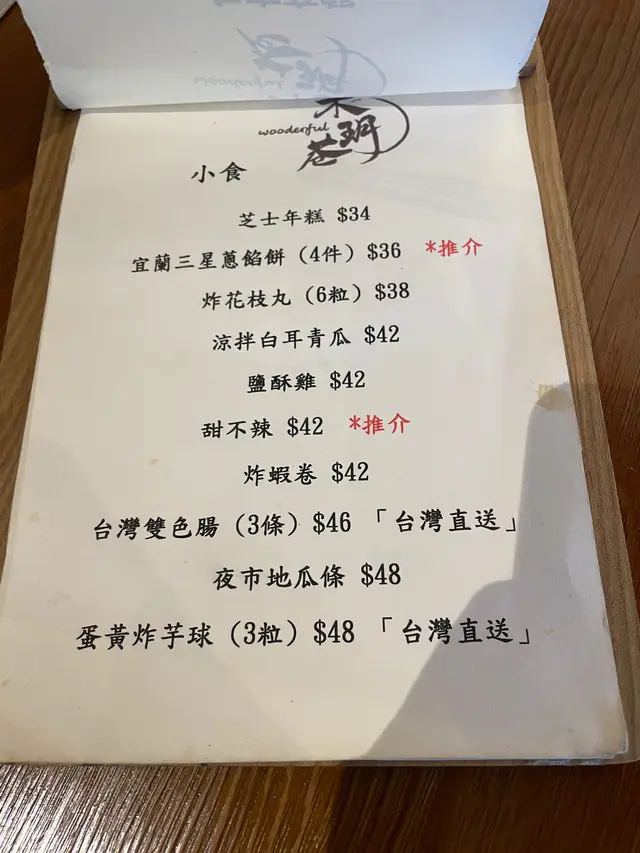 wooderful
小食
芝士年糕 $34
宜蘭三星蔥餡餅 (4件) $36 *推介
炸花枝丸 (6粒) $38
涼拌白耳青瓜 $42
鹽酥雞 $42
甜不辣 $42 *推介
炸蝦卷 $42
台灣雙色腸 (3條) $46 「台灣直送」
夜市地瓜條 $48
蛋黃炸芋球 (3粒) $48 「台灣直送」